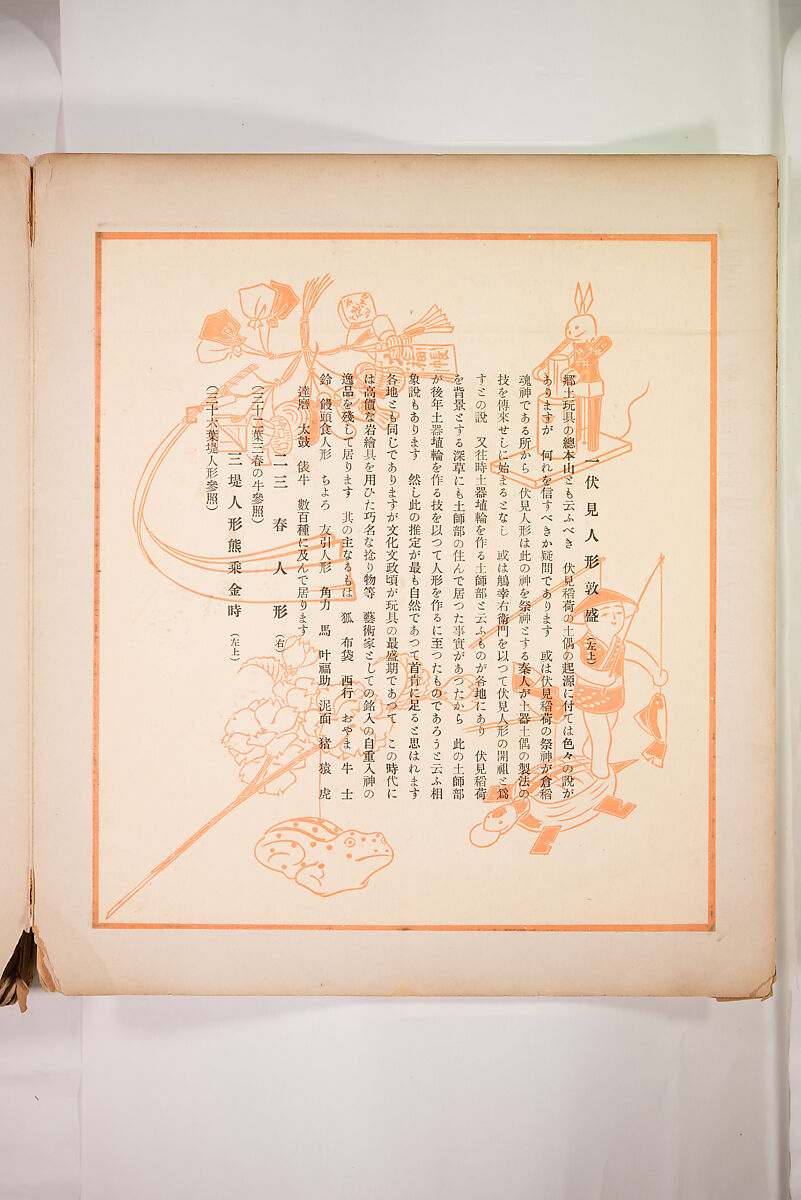 一 伏見人形敦盛（左上）
郷土玩具の總本山とも云ふべき　伏見稻荷の土偶の起源に付ては色々の說が
ありますが　何れを信ずべきか疑問であります　或は伏見稻荷の祭神が倉稻
魂神である所から　伏見人形は此の神を祭神とする秦人が土器土偶の製法の
技を傳來せしに始まるとなし　或は鵤幸右衞門を以つて伏見人形の開祖と爲
すとの說　又往時土器埴輪を作る土師部と云ふものが各地にあり　伏見稻荷
を背景とする深草にも土師部の住んで居つた事實があつたから　此の土師部
が後年土器埴輪を作る技を以つて人形を作るに至つたものであろうと云ふ相
象說もあります　然し此の推定が最も自然であつて首肯に足ると思はれます
各地とも同じでありますが文化文政頃が玩具の最盛期であつて　この時代に
は高價な岩繪具を用ひた巧名な捻り物等　藝術家としての銘入の自重入神の
逸品を殘して居ります　其の主なるもは　狐　布袋　西行　おやま　牛　士
鈴　饅頭食人形　ちよろ　友引人形　角力　馬　叶福助　泥面　猪　猿　虎
達磨　太鼓　俵牛　數百種に及んで居ります
二 三春人形（右）
（三十二葉三春の牛參照）
三 堤人形熊乘金時（左上）
（三十六葉堤人形參照）